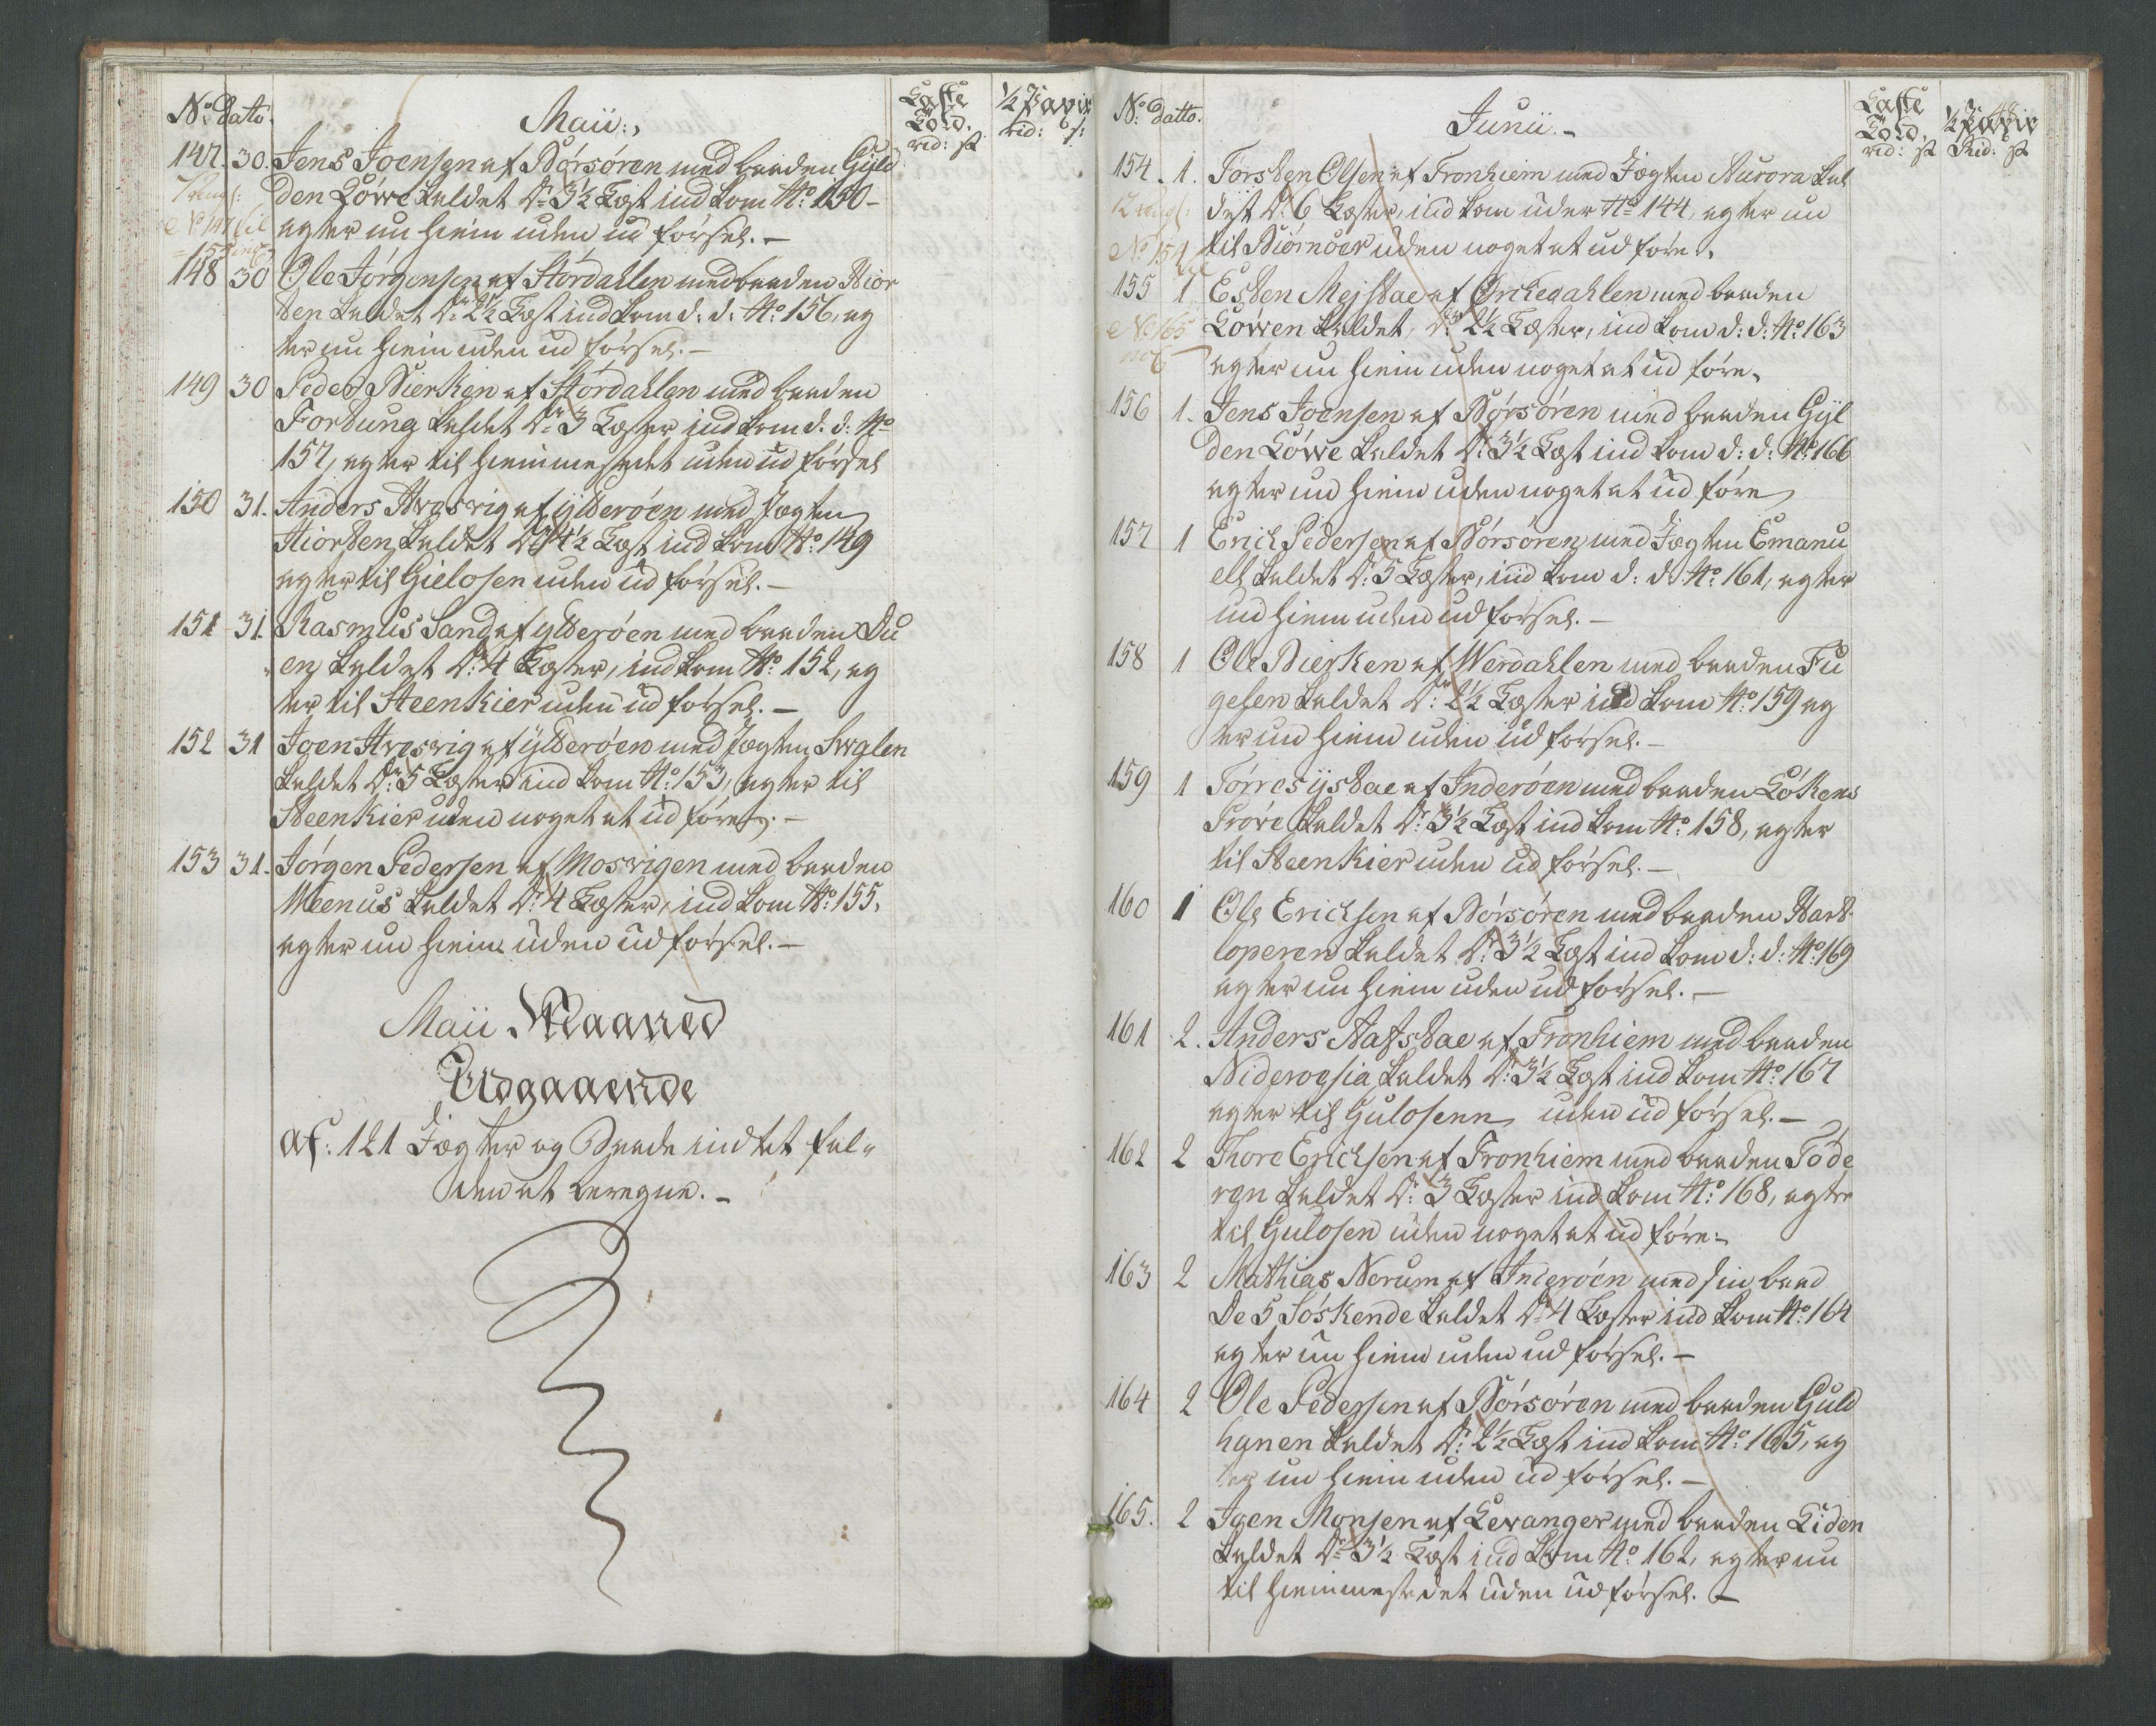 No: Dato.
Maii:,
Laste
Told.
rd: s
1/2 Favir
rd: s:
147. 30. Jens Joensen af Börsören med baaden Gyld
den Löwe kaldet Dr: 3½ Læst ind kom No: 150 –
agter nu hiem uden ud försel. –
No 147 til
148 30 Ole Jörgensen af Stördahlen med baaden Hior
ten kaldet Dr: 2½ Læst ind kom d: d: No: 156, ag
ter nu hiem uden ud försel. –
149 30 Peder Bierken af Stördahlen med baaden
Fortuna kaldet Dr: 3 Læster ind kom d. d: No
157, agter til hiemmestedet uden ud försel
150 31. Anders Hrosvig af ytteröen med Jagten
Hiorten kaldet Dr: 4½ Læst ind kom No: 149
agter til Gielosen uden ud försel. –
151 31. Rasmus Sand af ytteröen med baaden Du
en kaldet Dr: 4 Læster, ind kom No: 152, ag
ter til Steenkier uden ud försel. –
152 31 Joen Hrosvig af ytteröen med Jagten Svalen
kaldet Dr: 5 Læster ind kom No: 153, agter til
Steenkier uden noget at ud före. –
153 31. Jörgen Pedersen af Mosvigen med baaden
Weenus kaldet Dr: 4 Læster, ind kom No: 155,
agter nu hiem uden ud försel. –
Maii Maaned
Udgaaende
af: 121 Jagter og Baade intet fal„
den at beregne. –
No: datto.
Junii. –
Laste
Told,
rd: s
1/2 Favir
Rd: s
154. 1. Törsten Olsen af Tronhiem med Jagten Aurora kal
det Dr: 6 Læster, ind kom under No 144, agter nu
til Biörnöer uden noget at ud före.
No 154
155 1 Esten Mejstae af Orckedahlen med baaden
Löwen kaldet, Dr: 2½ Læster, ind kom d: d: No: 163
agter nu hiem uden noget at ud före,
No 165
156 1. Jens Joensen af Börsören med baaden Gyl
den Löwe kaldet Dr: 3½ Læst ind kom d: d: No: 166
agter nu hiem uden noget at ud före
157 1 Erich Pedersen af Börsören med Jagten Emanu
ell kaldet Dr: 5 Læster, ind kom d: d: No: 161, agter
nu hiem uden ud försel. –
158 1 Ole Bierken af Werdahlen med baaden Fu
gelen kaldet Dr: 2½ Læster ind kom No: 159 ag
ter nu hiem uden ud försel. –
159 1 Törres ystae af Inderöen med baaden Lökens
Pröve kaldet Dr: 3½ Læst ind kom No: 158, agter
til Steenkier uden ud försel. –
160 1 Ole Erichsen af Börsören med baaden Hart
loperen kaldet Dr: 3½ Læst ind kom d: d: No: 169
agter nu hiem uden ud försel. –
161 2. Anders Aafstae af Tronhiem med baaden
Niderosia kaldet Dr: 3½ Læst ind kom No: 167
agter til Gulosenn uden ud försel. –
162 2 Thore Erichsen af Tronhiem med baaden Töde
ren kaldet Dr: 3 Læster ind kom No: 168, agter
til Gulosen uden noget at ud före. –
163 2 Mathias Norum af Inderöen med sin baad
De 5 Söskende kaldet Dr: 4 Læster ind kom No: 164
agter nu hiem uden ud försel. –
164 2 Ole Pedersen af Börsören med baaden Guld
hanen kaldet Dr: 2½ Læst ind kom No: 165, ag
ter nu hiem uden ud försel. –
165. 2 Joen Monsen af Levanger med baaden Liden
kaldet Dr: 3½ Læst ind kom No: 162, agter nu
til hiemmestedet uden ud försel. –